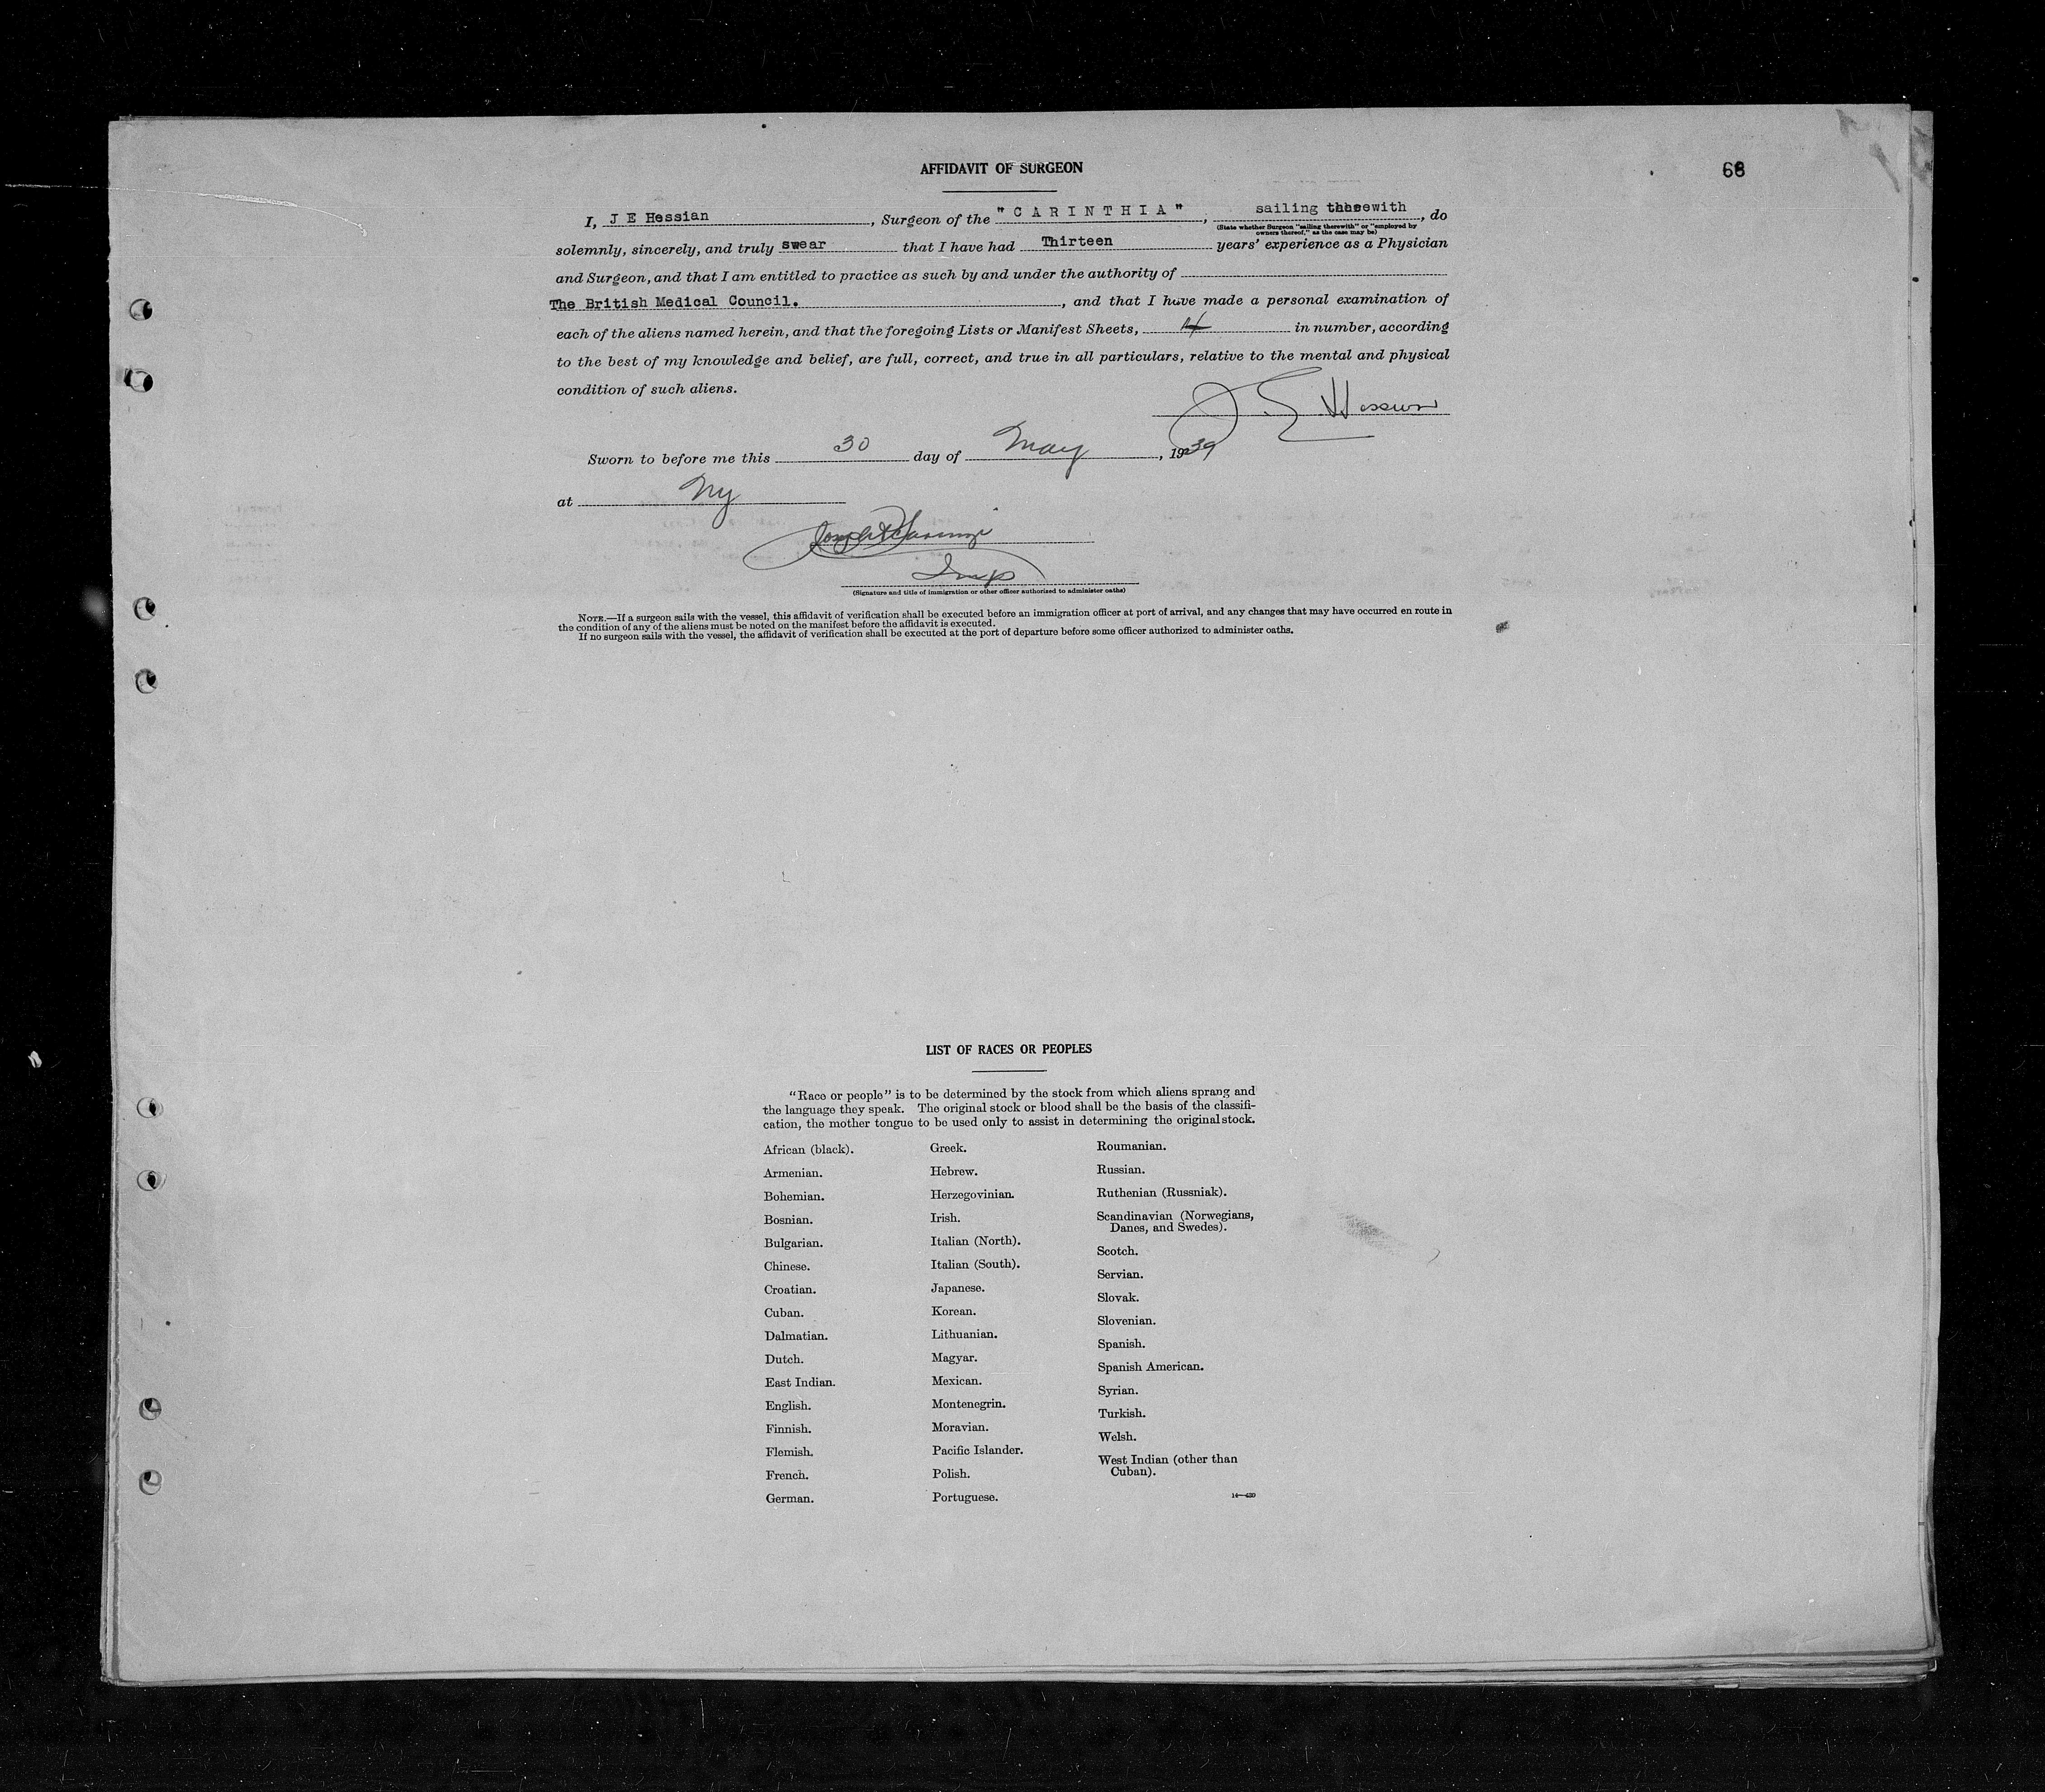 AFFIDAVIT OF SURGEON
68
I, J E Hessian, Surgeon of the "CARINTHIA", sailing therewith, do
(State whether Surgeon "sailing therewith" or "employed by
owners thereof," as the case may be)
solemnly, sincerely, and truly swear that I have had Thirteen years' experience as a Physician
and Surgeon, and that I am entitled to practice as such by and under the authority of
The British Medical Council., and that I have made a personal examination of
each of the aliens named herein, and that the foregoing Lists or Manifest Sheets, 14 in number, according
to the best of my knowledge and belief, are full, correct, and true in all particulars, relative to the mental and physical
condition of such aliens.
J E Hessian
Sworn to before me this 30 day of May, 1939
at NY
Insp
(Signature and title of immigration or other officer authorized to administer oaths)
NOTE.—If a surgeon sails with the vessel, this affidavit of verification shall be executed before an immigration officer at port of arrival, and any changes that may have occurred en route in
the condition of any of the aliens must be noted on the manifest before the affidavit is executed.
If no surgeon sails with the vessel, the affidavit of verification shall be executed at the port of departure before some officer authorized to administer oaths.
LIST OF RACES OR PEOPLES
"Race or people" is to be determined by the stock from which aliens sprang and
the language they speak. The original stock or blood shall be the basis of the classifi-
cation, the mother tongue to be used only to assist in determining the original stock.
African (black).
Armenian.
Bohemian.
Bosnian.
Bulgarian.
Chinese.
Croatian.
Cuban.
Dalmatian.
Dutch.
East Indian.
English.
Finnish.
Flemish.
French.
German.
Greek.
Hebrew.
Herzegovinian.
Irish.
Italian (North).
Italian (South).
Japanese.
Korean.
Lithuanian.
Magyar.
Mexican.
Montenegrin.
Moravian.
Pacific Islander.
Polish.
Portuguese.
Roumanian.
Russian.
Ruthenian (Russniak).
Scandinavian (Norwegians,
Danes, and Swedes).
Scotch.
Servian.
Slovak.
Slovenian.
Spanish.
Spanish American.
Syrian.
Turkish.
Welsh.
West Indian (other than
Cuban).
14—430